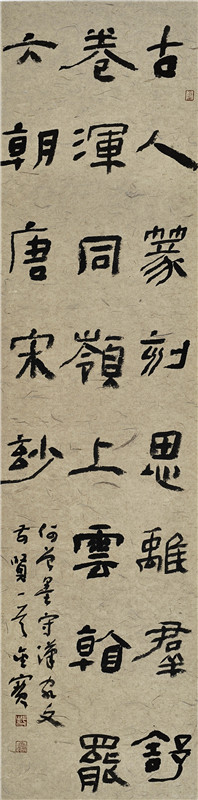 古人篆刻思離羣舒
卷渾同嶺上雲看罷
六朝唐宋妙
何曾墨守漢家文
古賢一